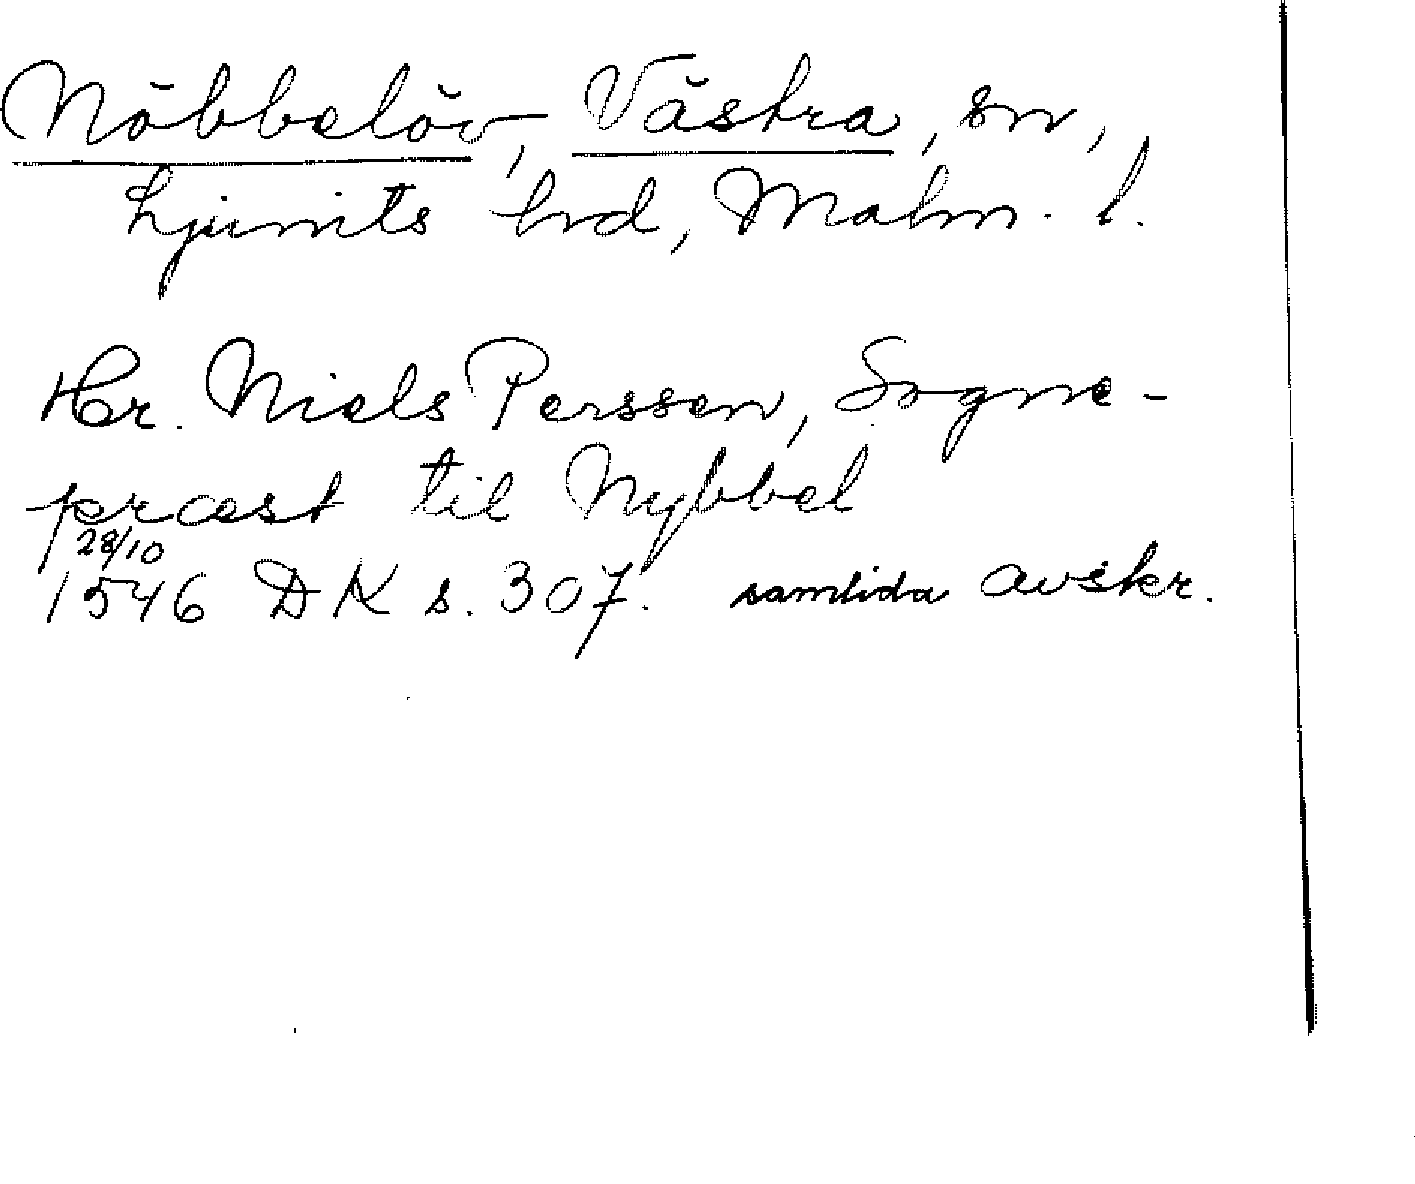 Nöbbelöv, Västra, sn,
Ljunits hrd, Malm. l.
Hr. Niels Perssen, Sogne-
præst til Nybbel
28/10
1546 DK s. 307. samtida avskr.